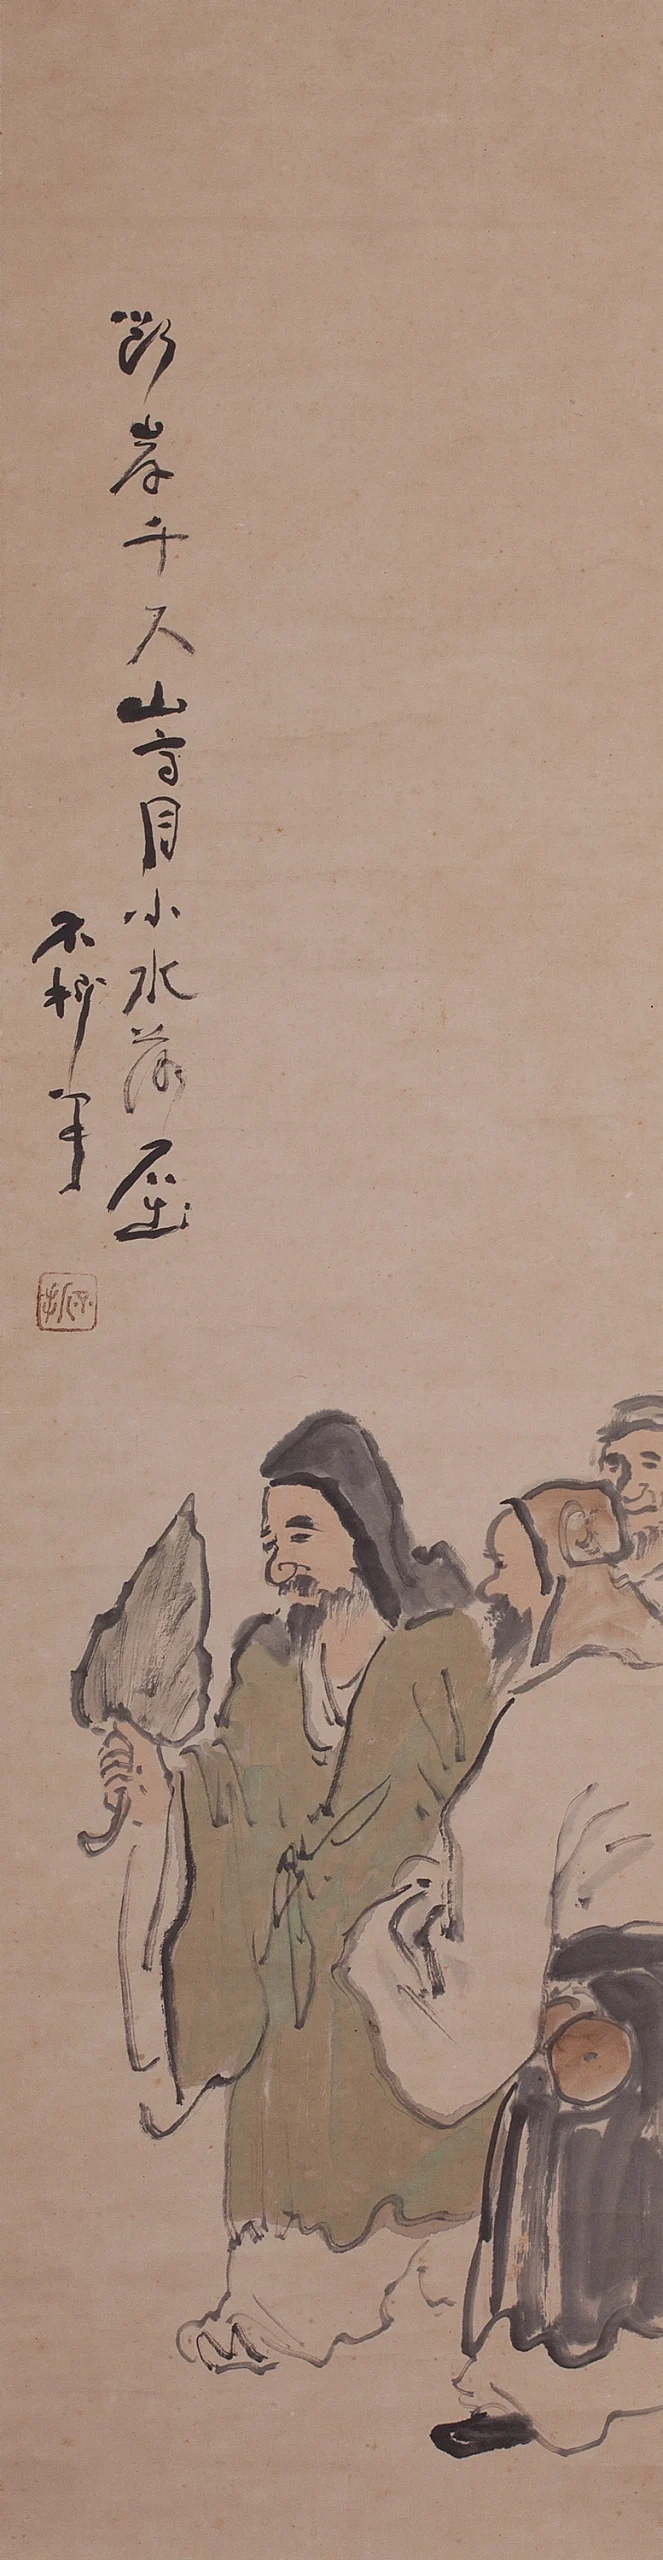 断岸千尺山高月小水落石出
不折